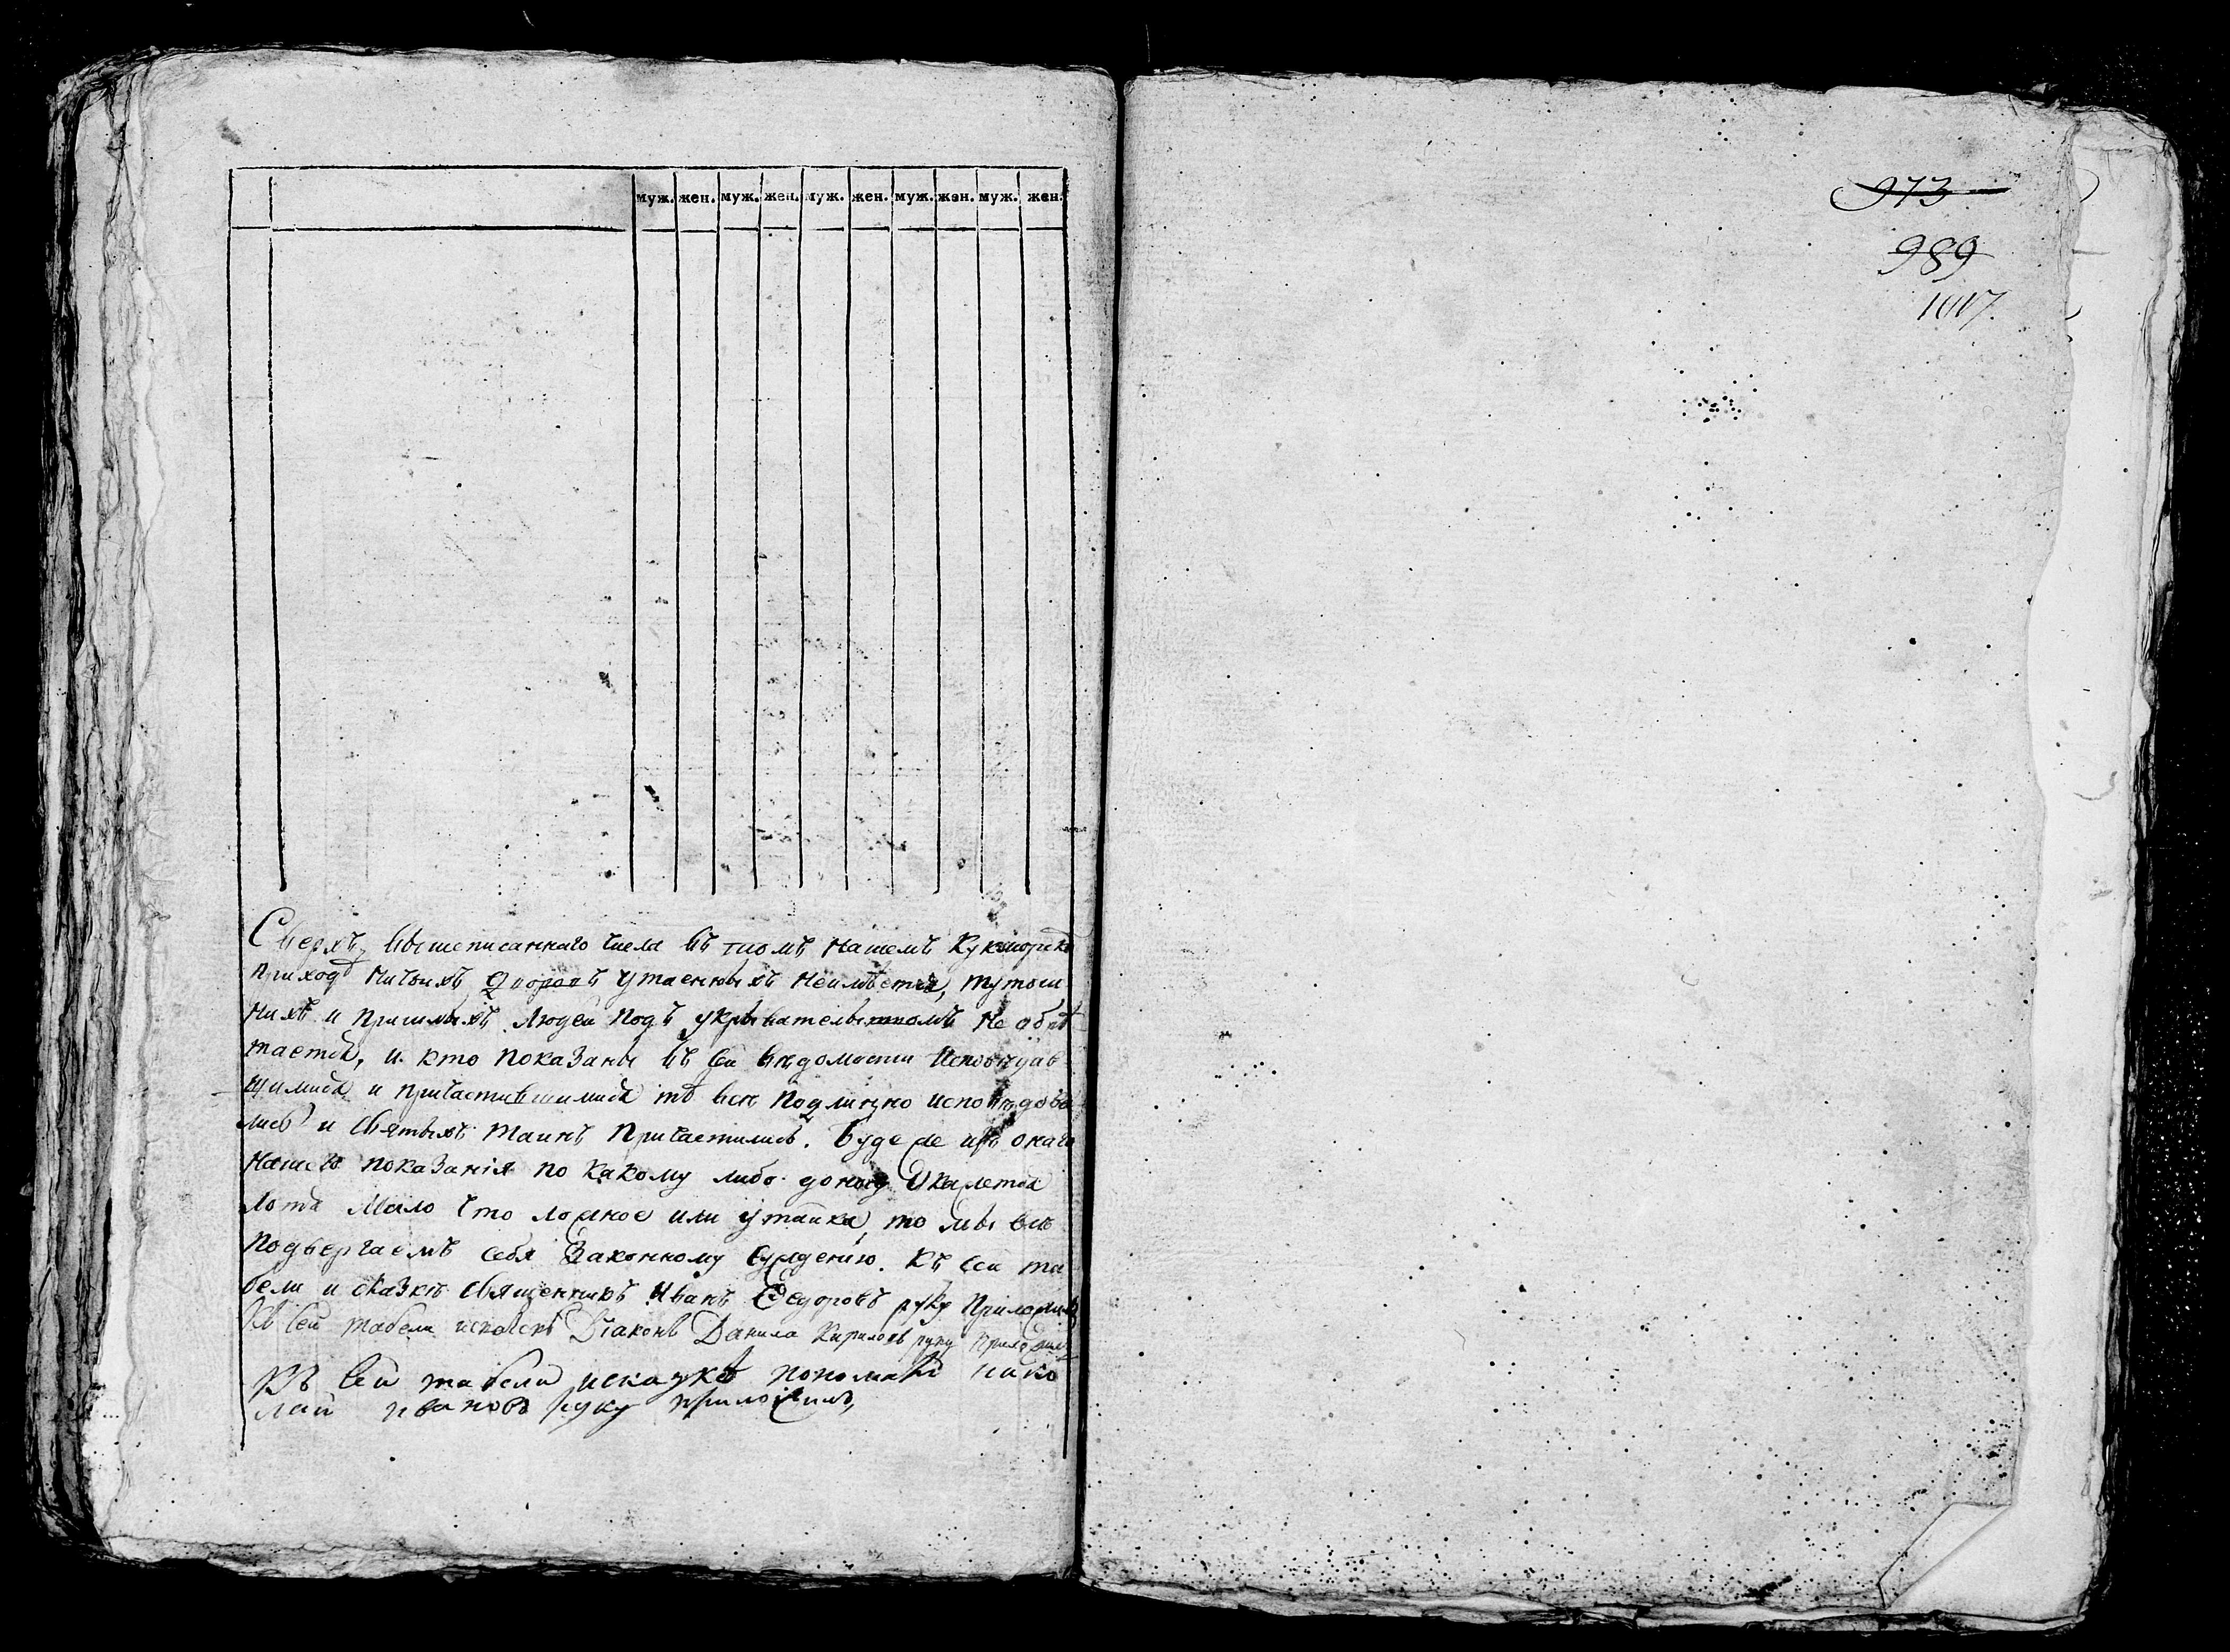 муж. жен. муж. жен. муж. жен. муж. жен. муж. жен.
973
989
1017.
Сверхъ вышеписаннаго числа въ томъ нашемъ
приход ничьихъ дворовъ утаенныхъ неимѣется, тутош
нихъ и пришлыхъ людей подъ укрывательствомъ не обрѣ
тается, и кто показаны въ сей вѣдомости исповѣдав
шимися и причастившимися тѣ всѣ подлинно исповѣдова
лись и святыхъ таинъ причастились. Буде же изъ онаго
нашего показанія по какому либо доносу окажется
хотя мало что ложное или утайка, то мы
подвергаемъ себя законному сужденію. Къ сей та
бели и сказкѣ священникъ Иванъ Ѳедоровъ руку приложилъ
Къ сей табели исказкѣ Діаконъ Данила Кириловъ руку приложилъ
Къ сей табели исказкѣ пономарь нико
лай ивановъ руку приложилъ,